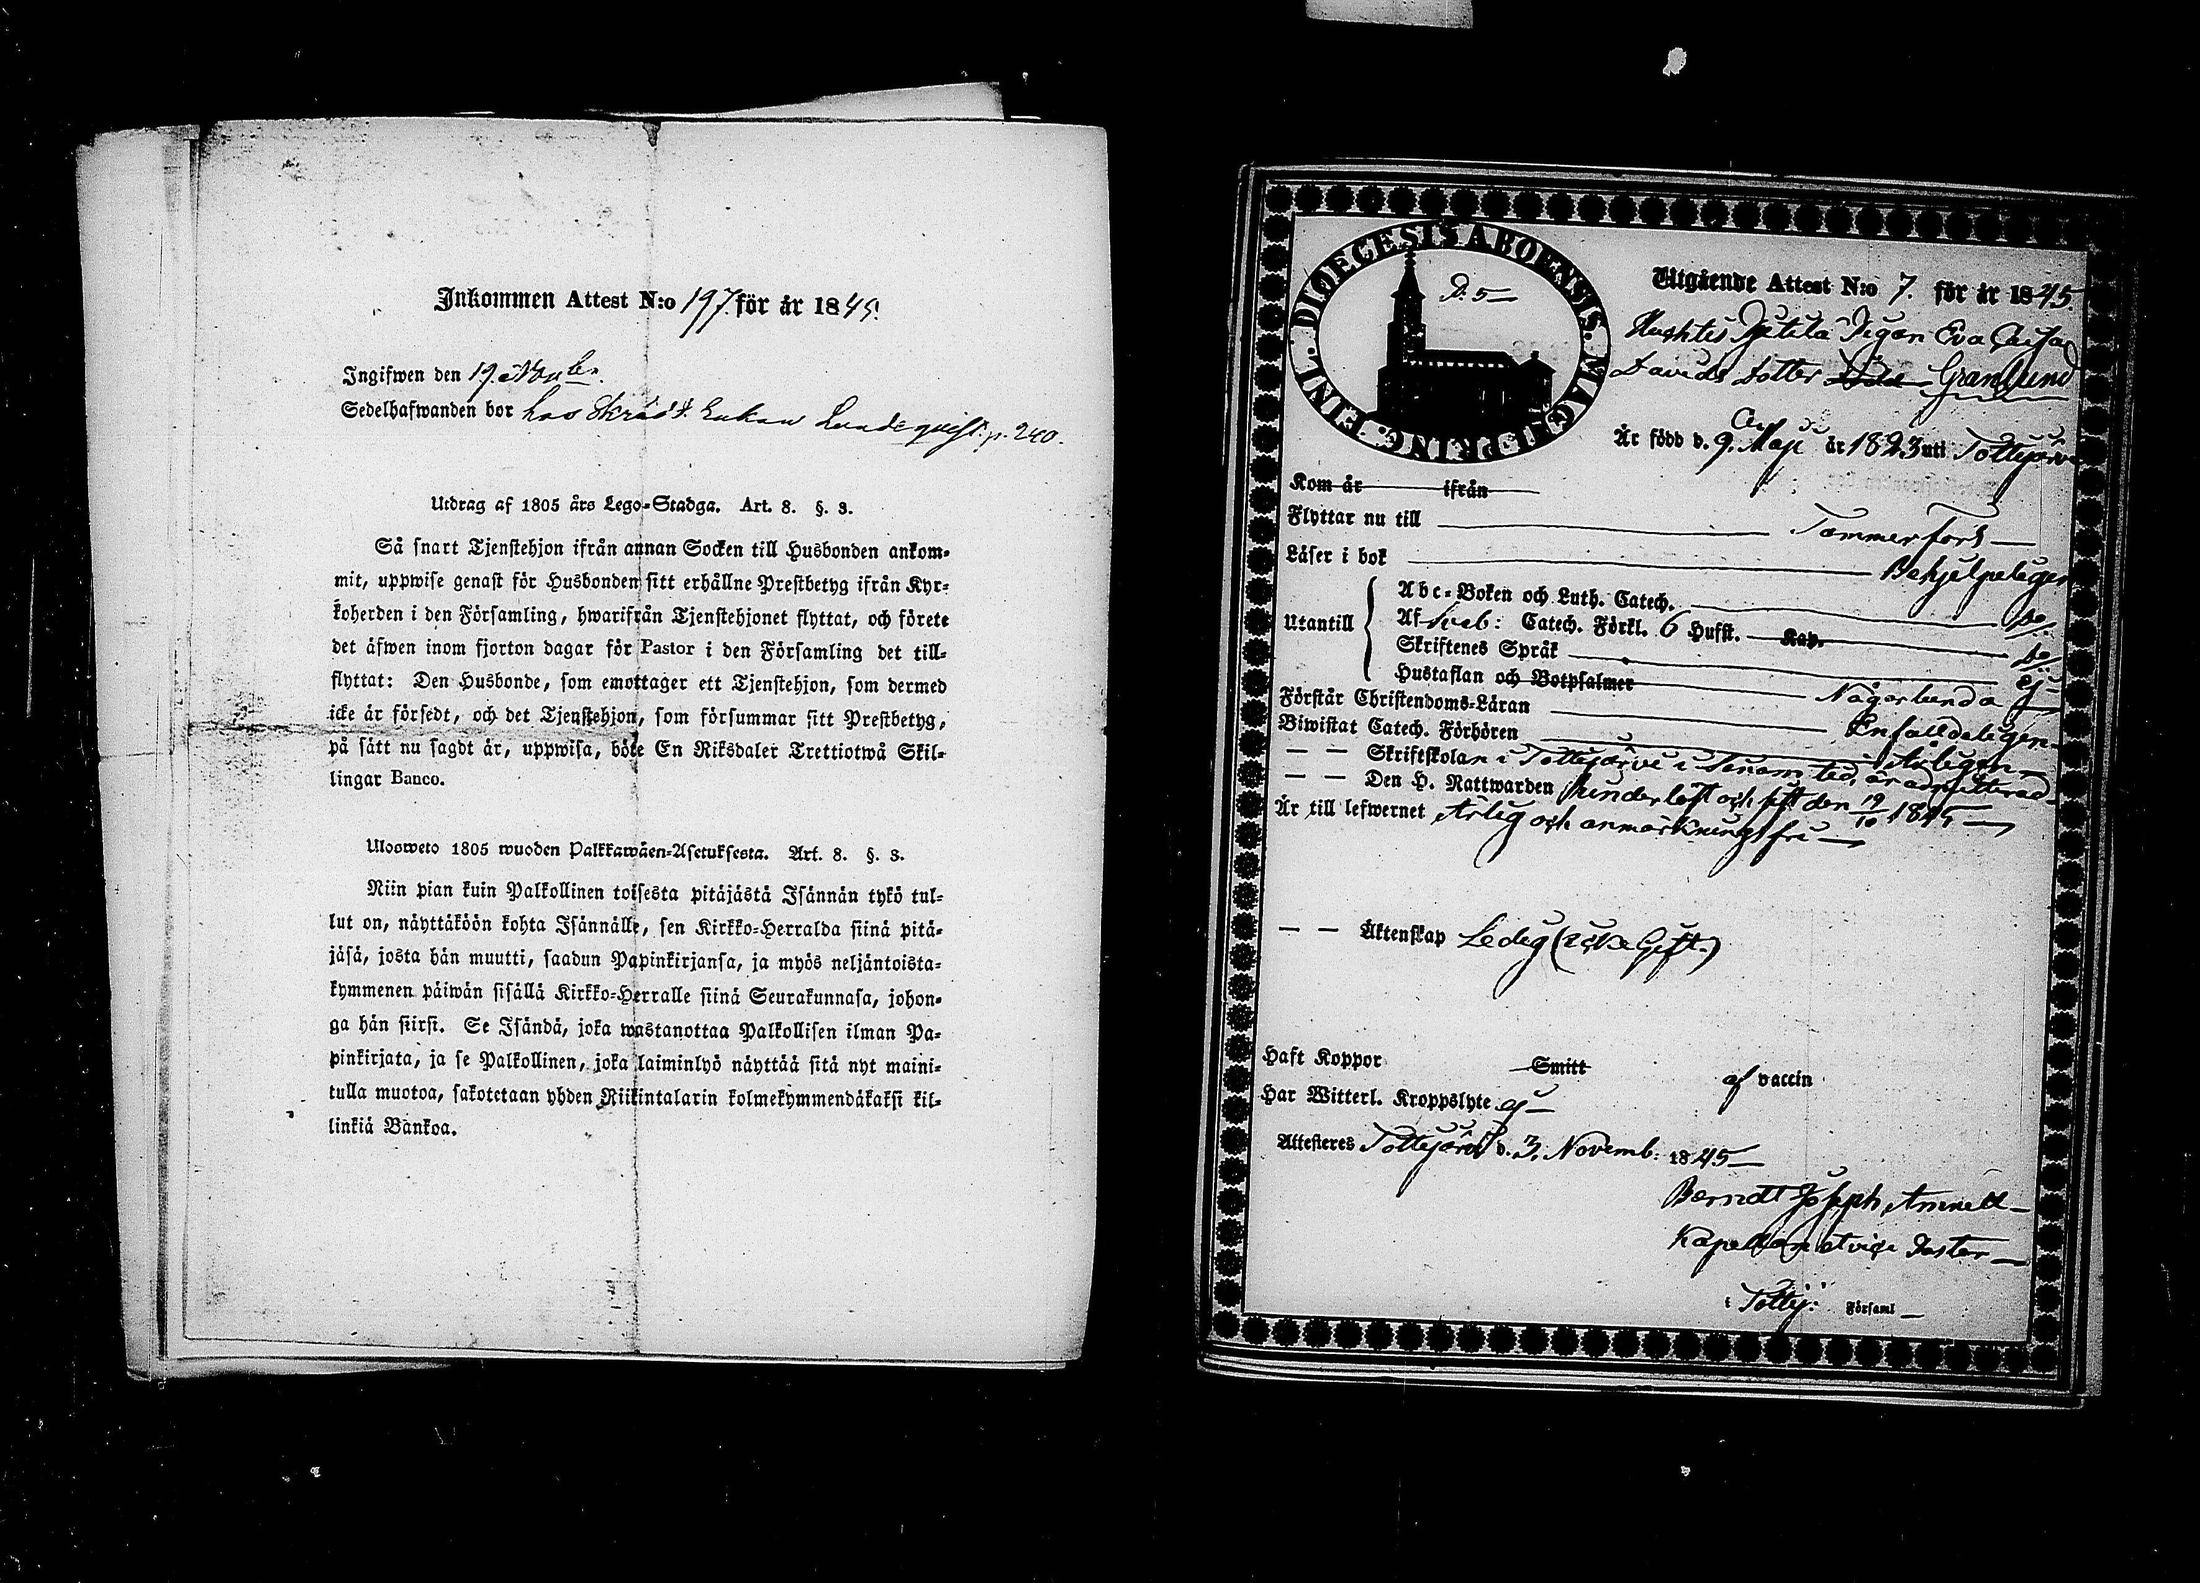 Inkommen Attest N:o 197. för år 1845.
Ingifwen den 19. Novbr.
Sedelhafwanden bor hos Skrädd. Enkan Lundeqvist. p. 240.
Utdrag af 1805 års Lego-Stadga. Art. 8. §. 3.
Så snart Tjenstehjon ifrån annan Socken till Husbonden ankom-
mit, uppwise genast för Husbonden sitt erhållne Prestbetyg ifrån Kyr-
koherden i den Församling, hwarifrån Tjenstehjonet flyttat, och förete
det äfwen inom fjorton dagar för Pastor i den Församling det till-
flyttat: Den Husbonde, som emottager ett Tjenstehjon, som dermed
icke är försedt, och det Tjenstehjon, som försummar sitt Prestbetyg,
på sätt nu sagdt är, uppwisa, böte En Riksdaler Trettiotwå Skil-
lingar Banco.
Ulosweto 1805 wuoden Palkkawäen-Asetuksesta. Art. 8. §. 3.
Niin pian kuin Palkollinen toisesta pitäjästä Isännän tykö tul-
lut on, näyttäköön kohta Isännälle, sen Kirkko-Herralda siinä pitä-
jäsä, josta hän muutti, saadun Papinkirjansa, ja myös neljäntoista-
kymmenen päiwän sisällä Kirkko-Herralle siinä Seurakunnasa, johon-
ga hän siirsi. Se Isändä, joka wastanottaa Palkollisen ilman Pa-
pinkirjata, ja se Palkollinen, joka laiminlyö näyttää sitä nyt maini-
tulla muotoa, sakotetaan yhden Riikintalarin kolmekymmendäkaksi kil-
linkiä Bankoa.
DIOECESIS ABOENSIS. MAG. PRINC. FINL.
P. 5
Utgående Attest N:o 7. för år 1845.
Pigan Eva Caisa
Davids dotter Granlund
Är född d. 9. Maji år 1823 uti Tottijärvi
Kom år ifrån
Flyttar nu till Tammerfors
Läser i bok Behjelpeligen
Utantill
Abc-Boken och Luth. Catech. do.
Af Sveb: Catech. Förkl. 6 Hufst. Kap. do.
Skriftenes Språk ej
Hustaflan och Botpsalmer ej
Förstår Christendoms-Läran Enfalldeligen
Biwistat Catech. Förhören Årligen
— — Skriftskolan i Tottijärvi i senom tid, är admitterad
— — Den H. Nattwarden sist den 19/10 1845
Är till lefwernet Ärlig och anmärkningsfri
— — Äktenskap Ledig (icke Gift.)
Haft Koppor Smitt af vaccin
Har Witterl. Kroppslyte ej
Attesteres Tottijärvi d. 3. Novemb. 1845
Berndt Joseph
Kapellan et vice Pastor
i Tottij: Församl